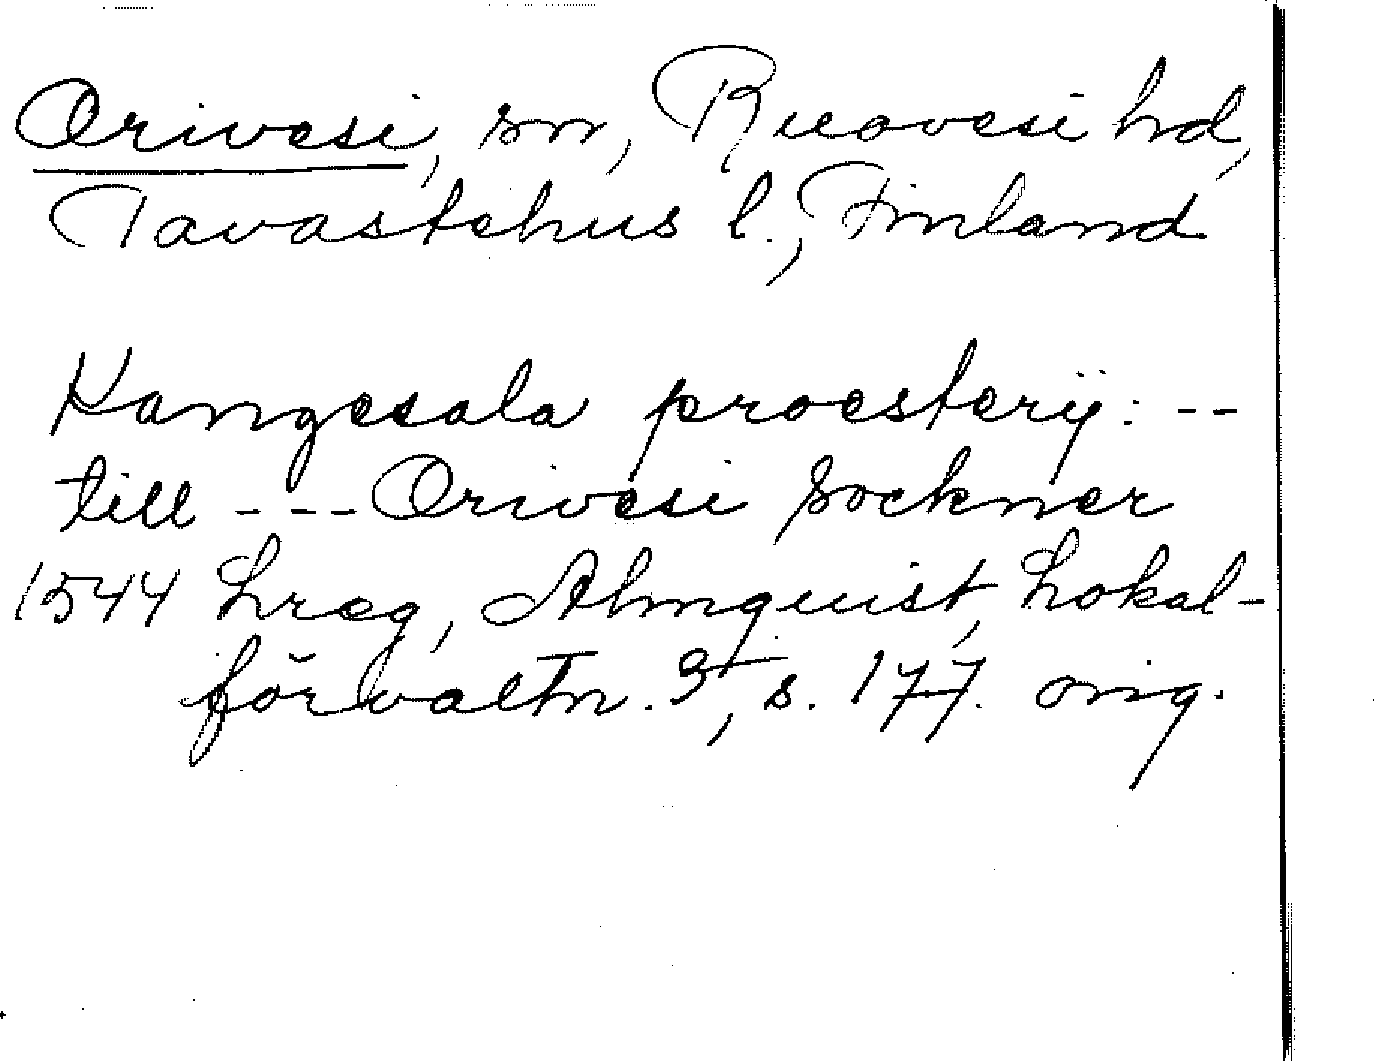 Orivesi, sn, Ruovesi hd,
Tavastehus l., Finland
Kangesala proesterÿ: --
till --- Orivesi sockner
1544 Lreg, Almquist, Lokal-
förvaltn. 3, s. 177. orig.